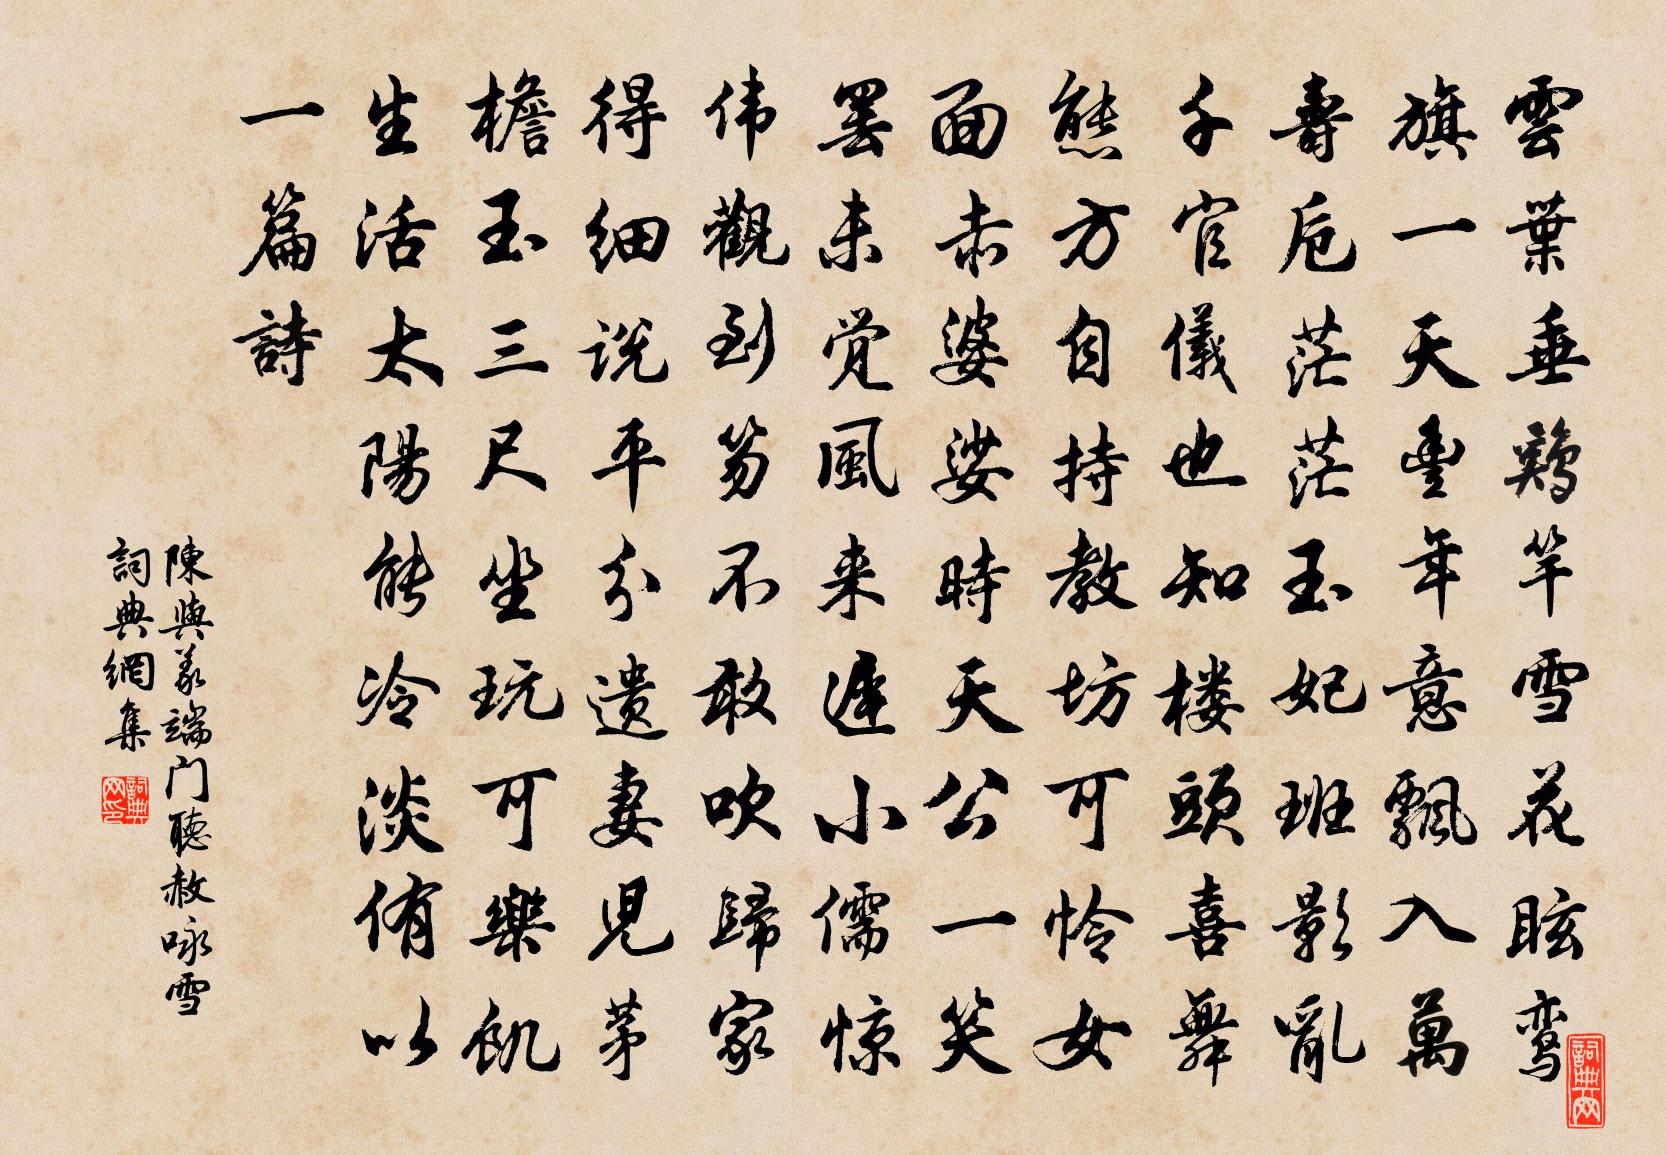 雲葉垂鶏竿雪花眩鸾
旗一天豊年意飄入萬
壽卮茫茫玉妃班影亂
千官儀也知楼頭喜舞
態方自持教坊可怜女
面赤婆娑時天公一笑
罢未覚風来遲小儒惊
伟觀到笏不敢吹歸家
得细说平分遗妻児茅
檐玉三尺坐玩可樂飢
生活太陽能冷淡侑以
一篇詩
陳與義端门聴赦咏雪
詞典網集
詞典网印
詞典网